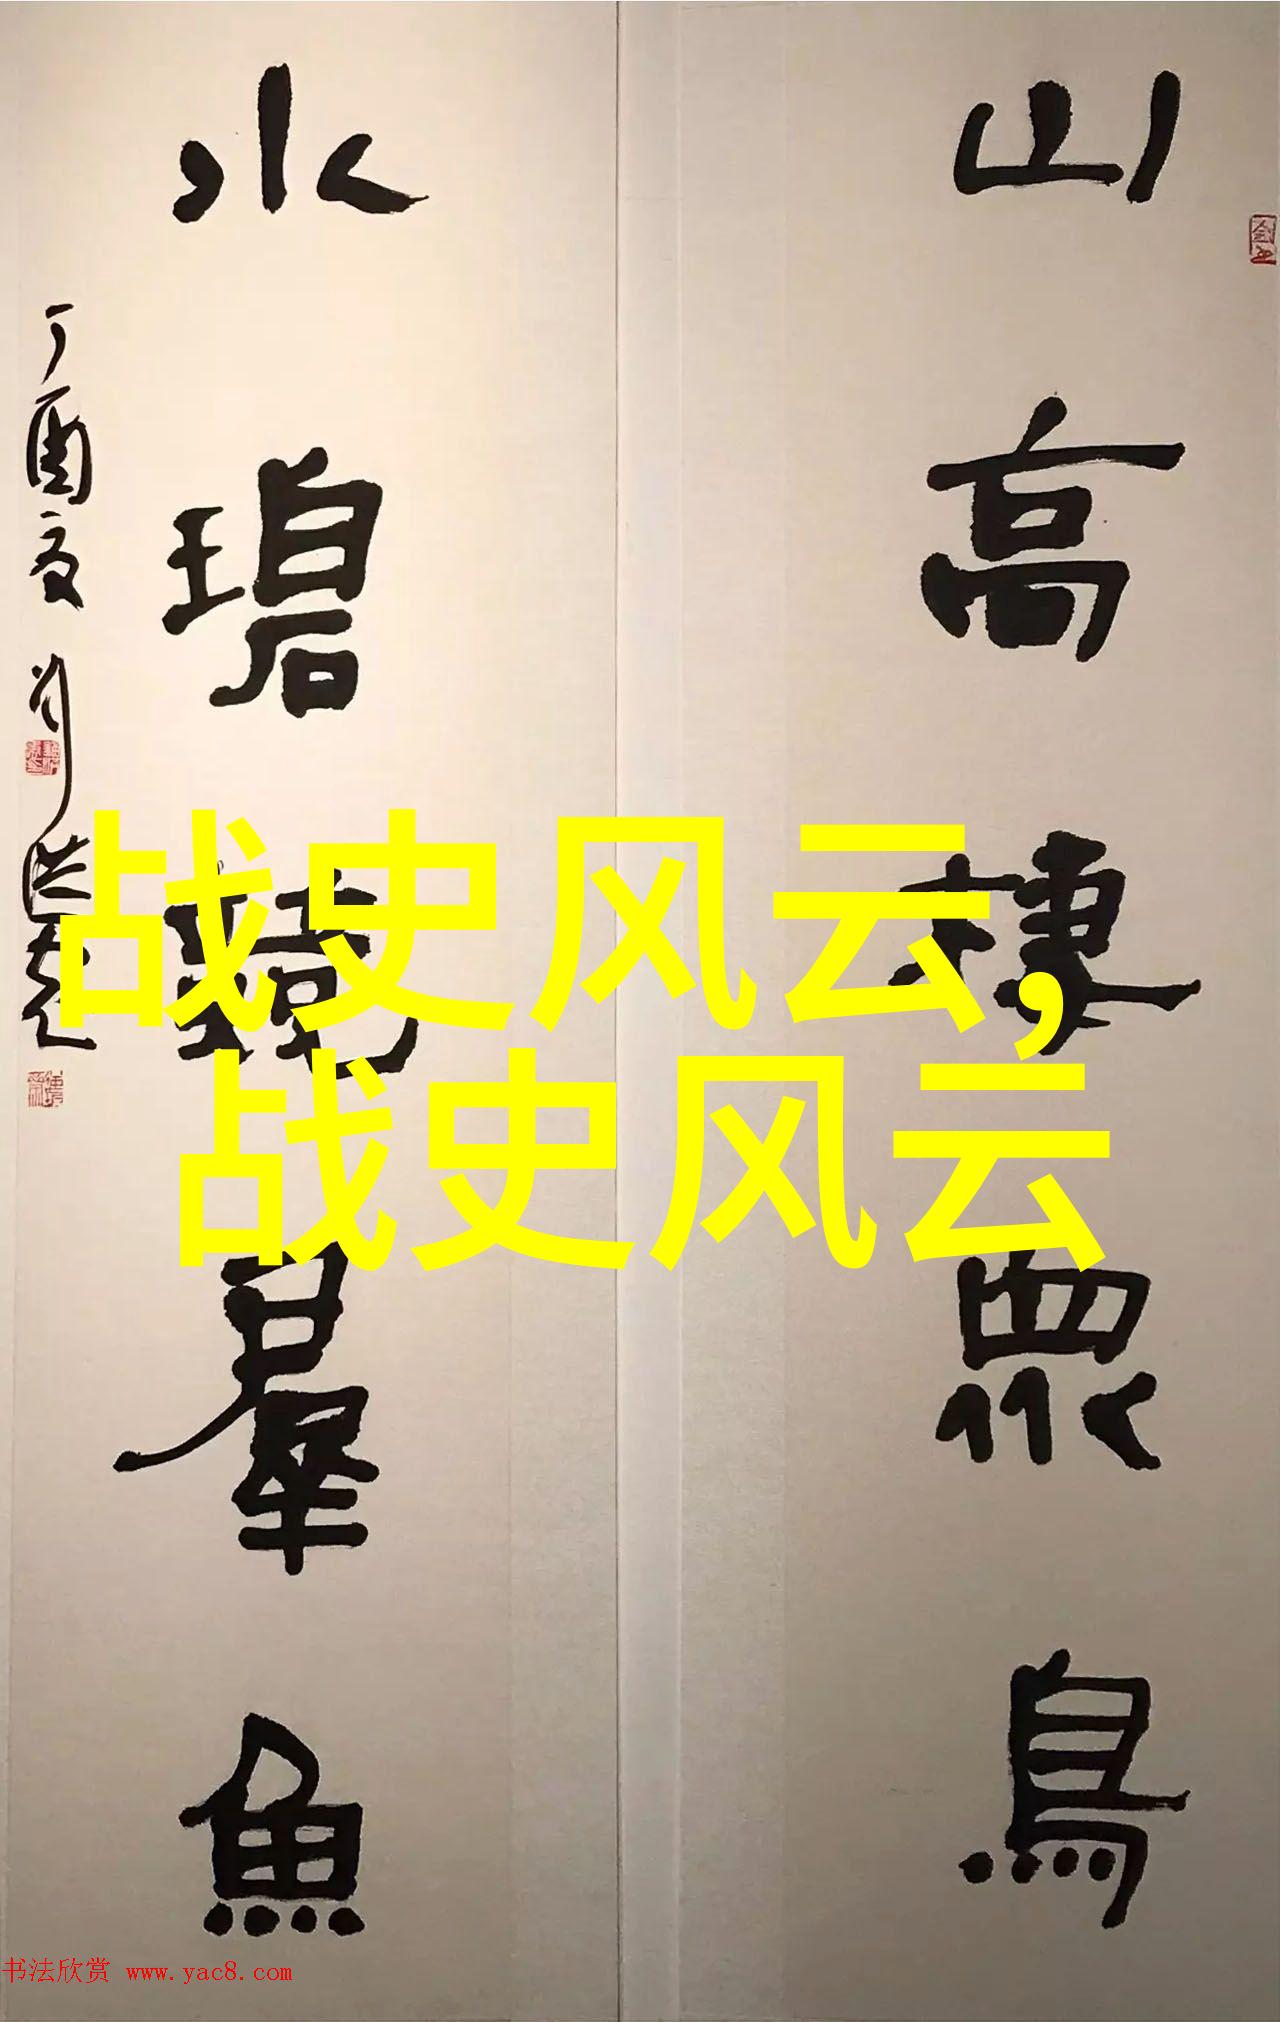 山高棲眾鳥
水碧競羣魚
丁酉夏
战史风云，
战史风云
书法欣赏 www.yac8.com